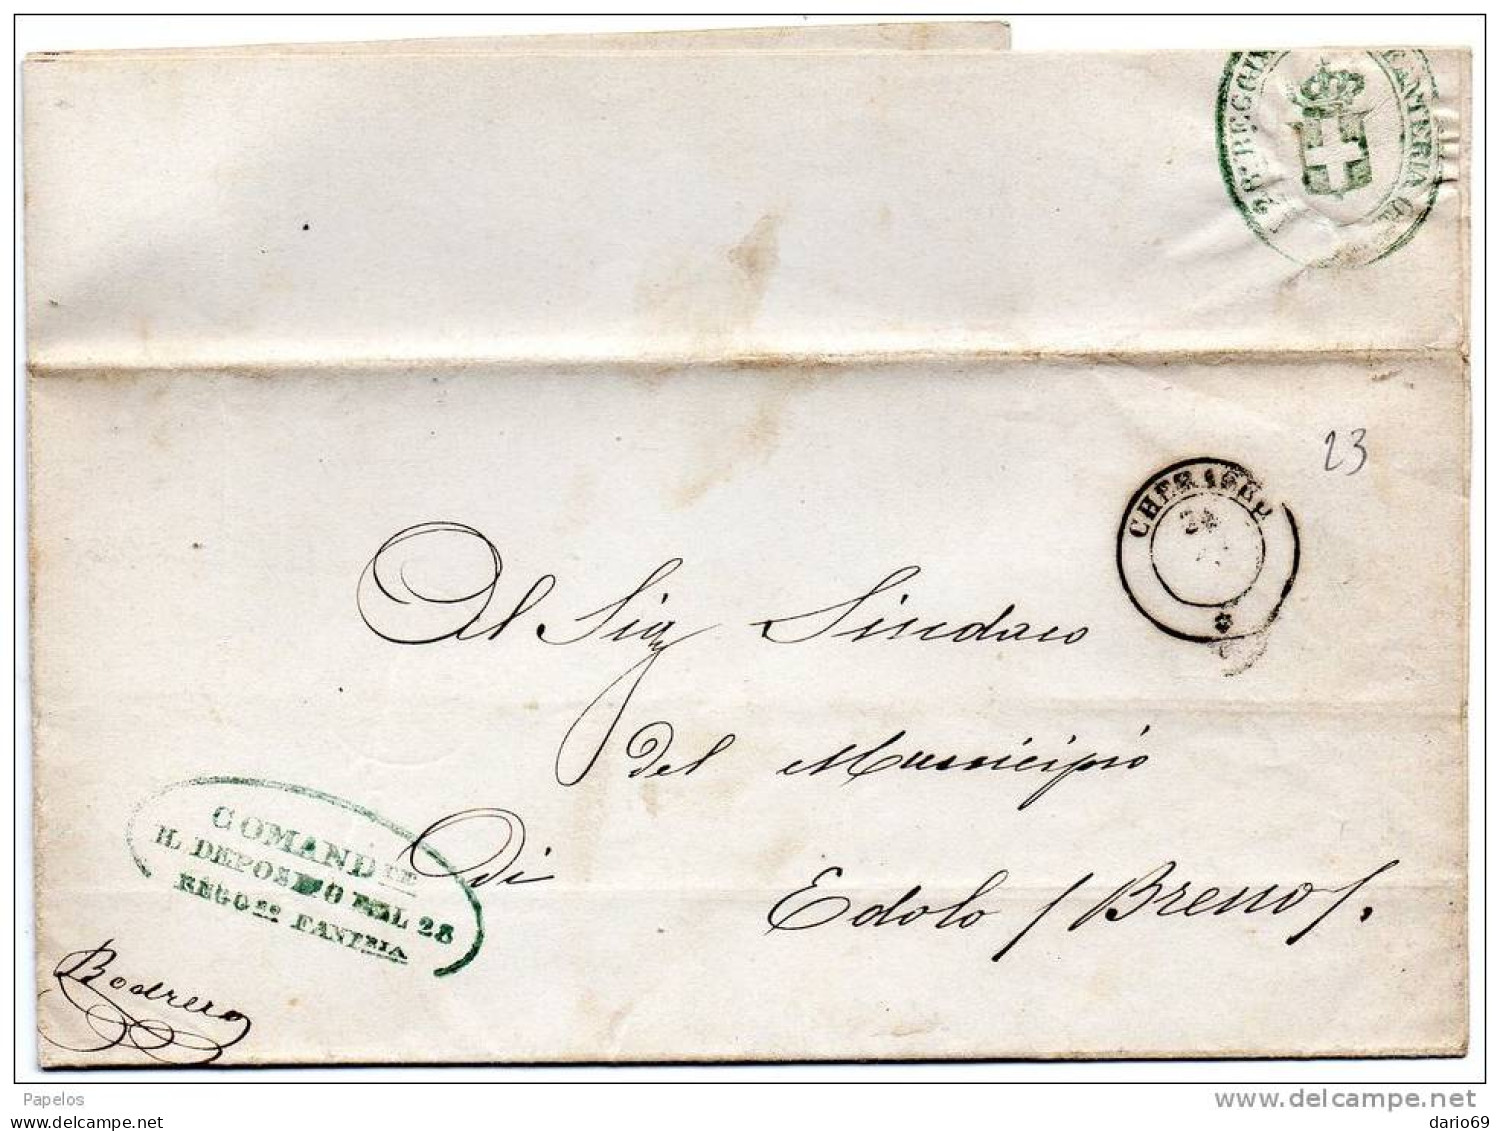 28º REGGIM FANTERIA
23
CHERASCO
24
Al Sig Sindaco
del Municipio
Di
Edolo / Breno /.
COMAND TE
IL DEPOSITO DEL 28
REGGO FANTRIA
Bodrero
Papelos
www.delcampe.net
dario69